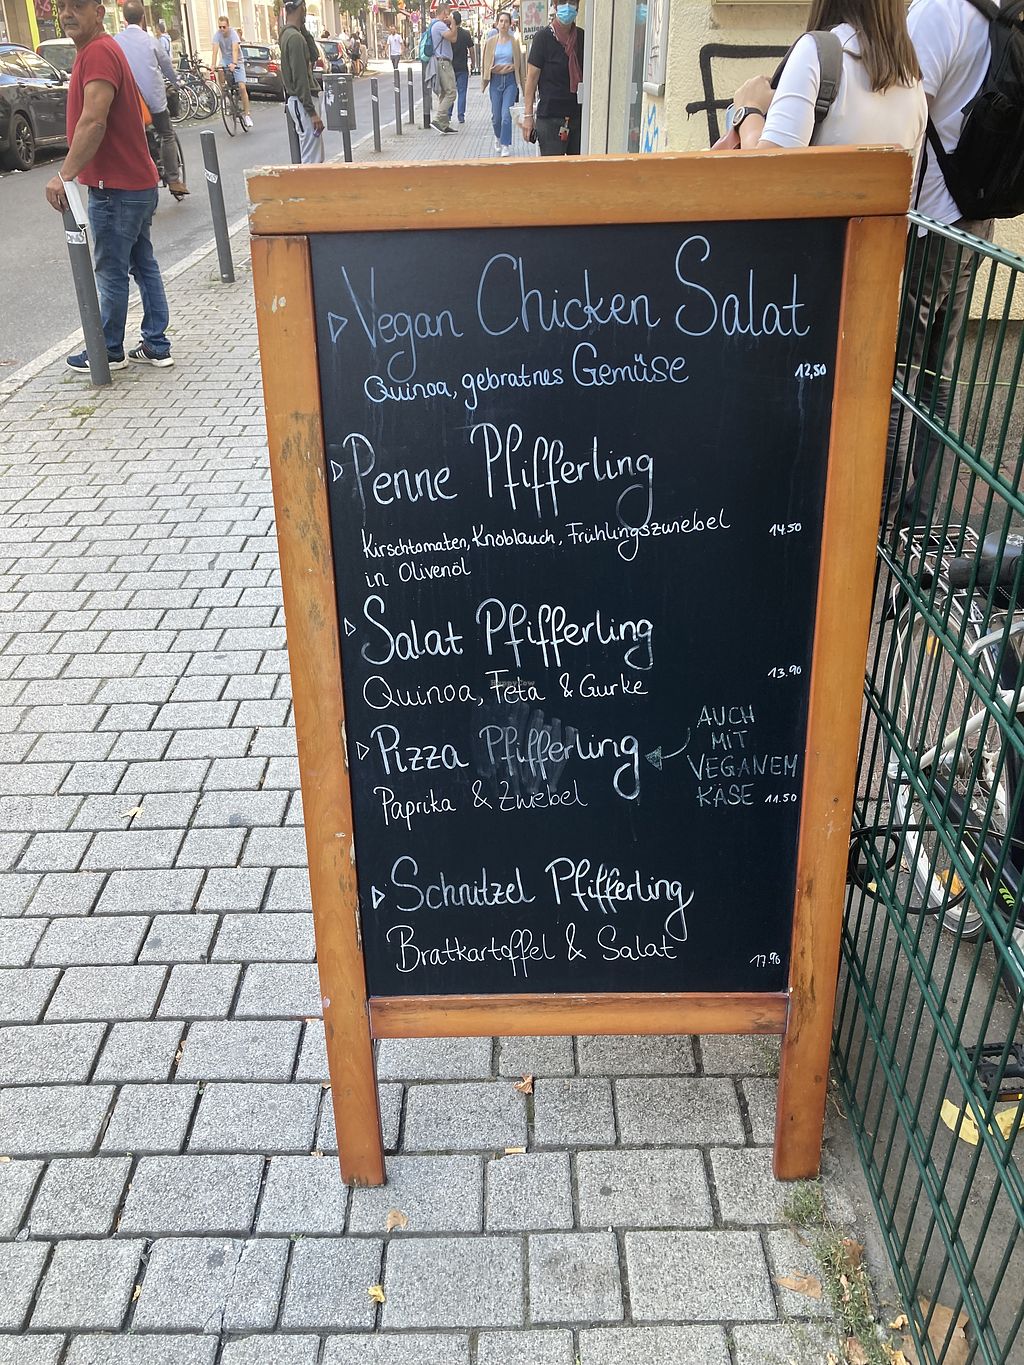 Vegan Chicken Salat
Quinoa, gebratnes Gemüse 12,50
Penne Pfifferling
Kirschtomaten, Knoblauch, Frühlingszwiebel 14.50
in Olivenöl
Salat Pfifferling
Quinoa, Feta & Gurke 13.90
Pizza Pfifferling
Paprika & Zwiebel
AUCH
MIT
VEGANEM
KÄSE 11.50
Schnitzel Pfifferling
Bratkartoffel & Salat 17.90
HappyCow